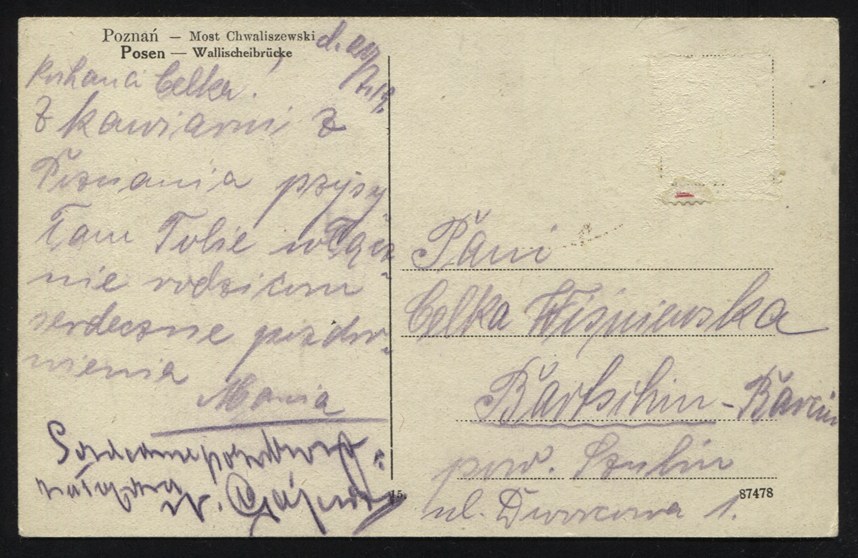 Poznań — Most Chwaliszewski
Posen — Wallischeibrücke
Kochana Celka!
Z kawiarni z
Poznania przysy
łam Tobie włącz-
nie rodzicom
serdeczne pozdro-
wienia
Mania
Serdeczne pozdrowie-
W.
Pani
Celka Wiśniewska
Bartschin - Barcin
pow. Szubin
ul. Dworcowa 1.
15
87478